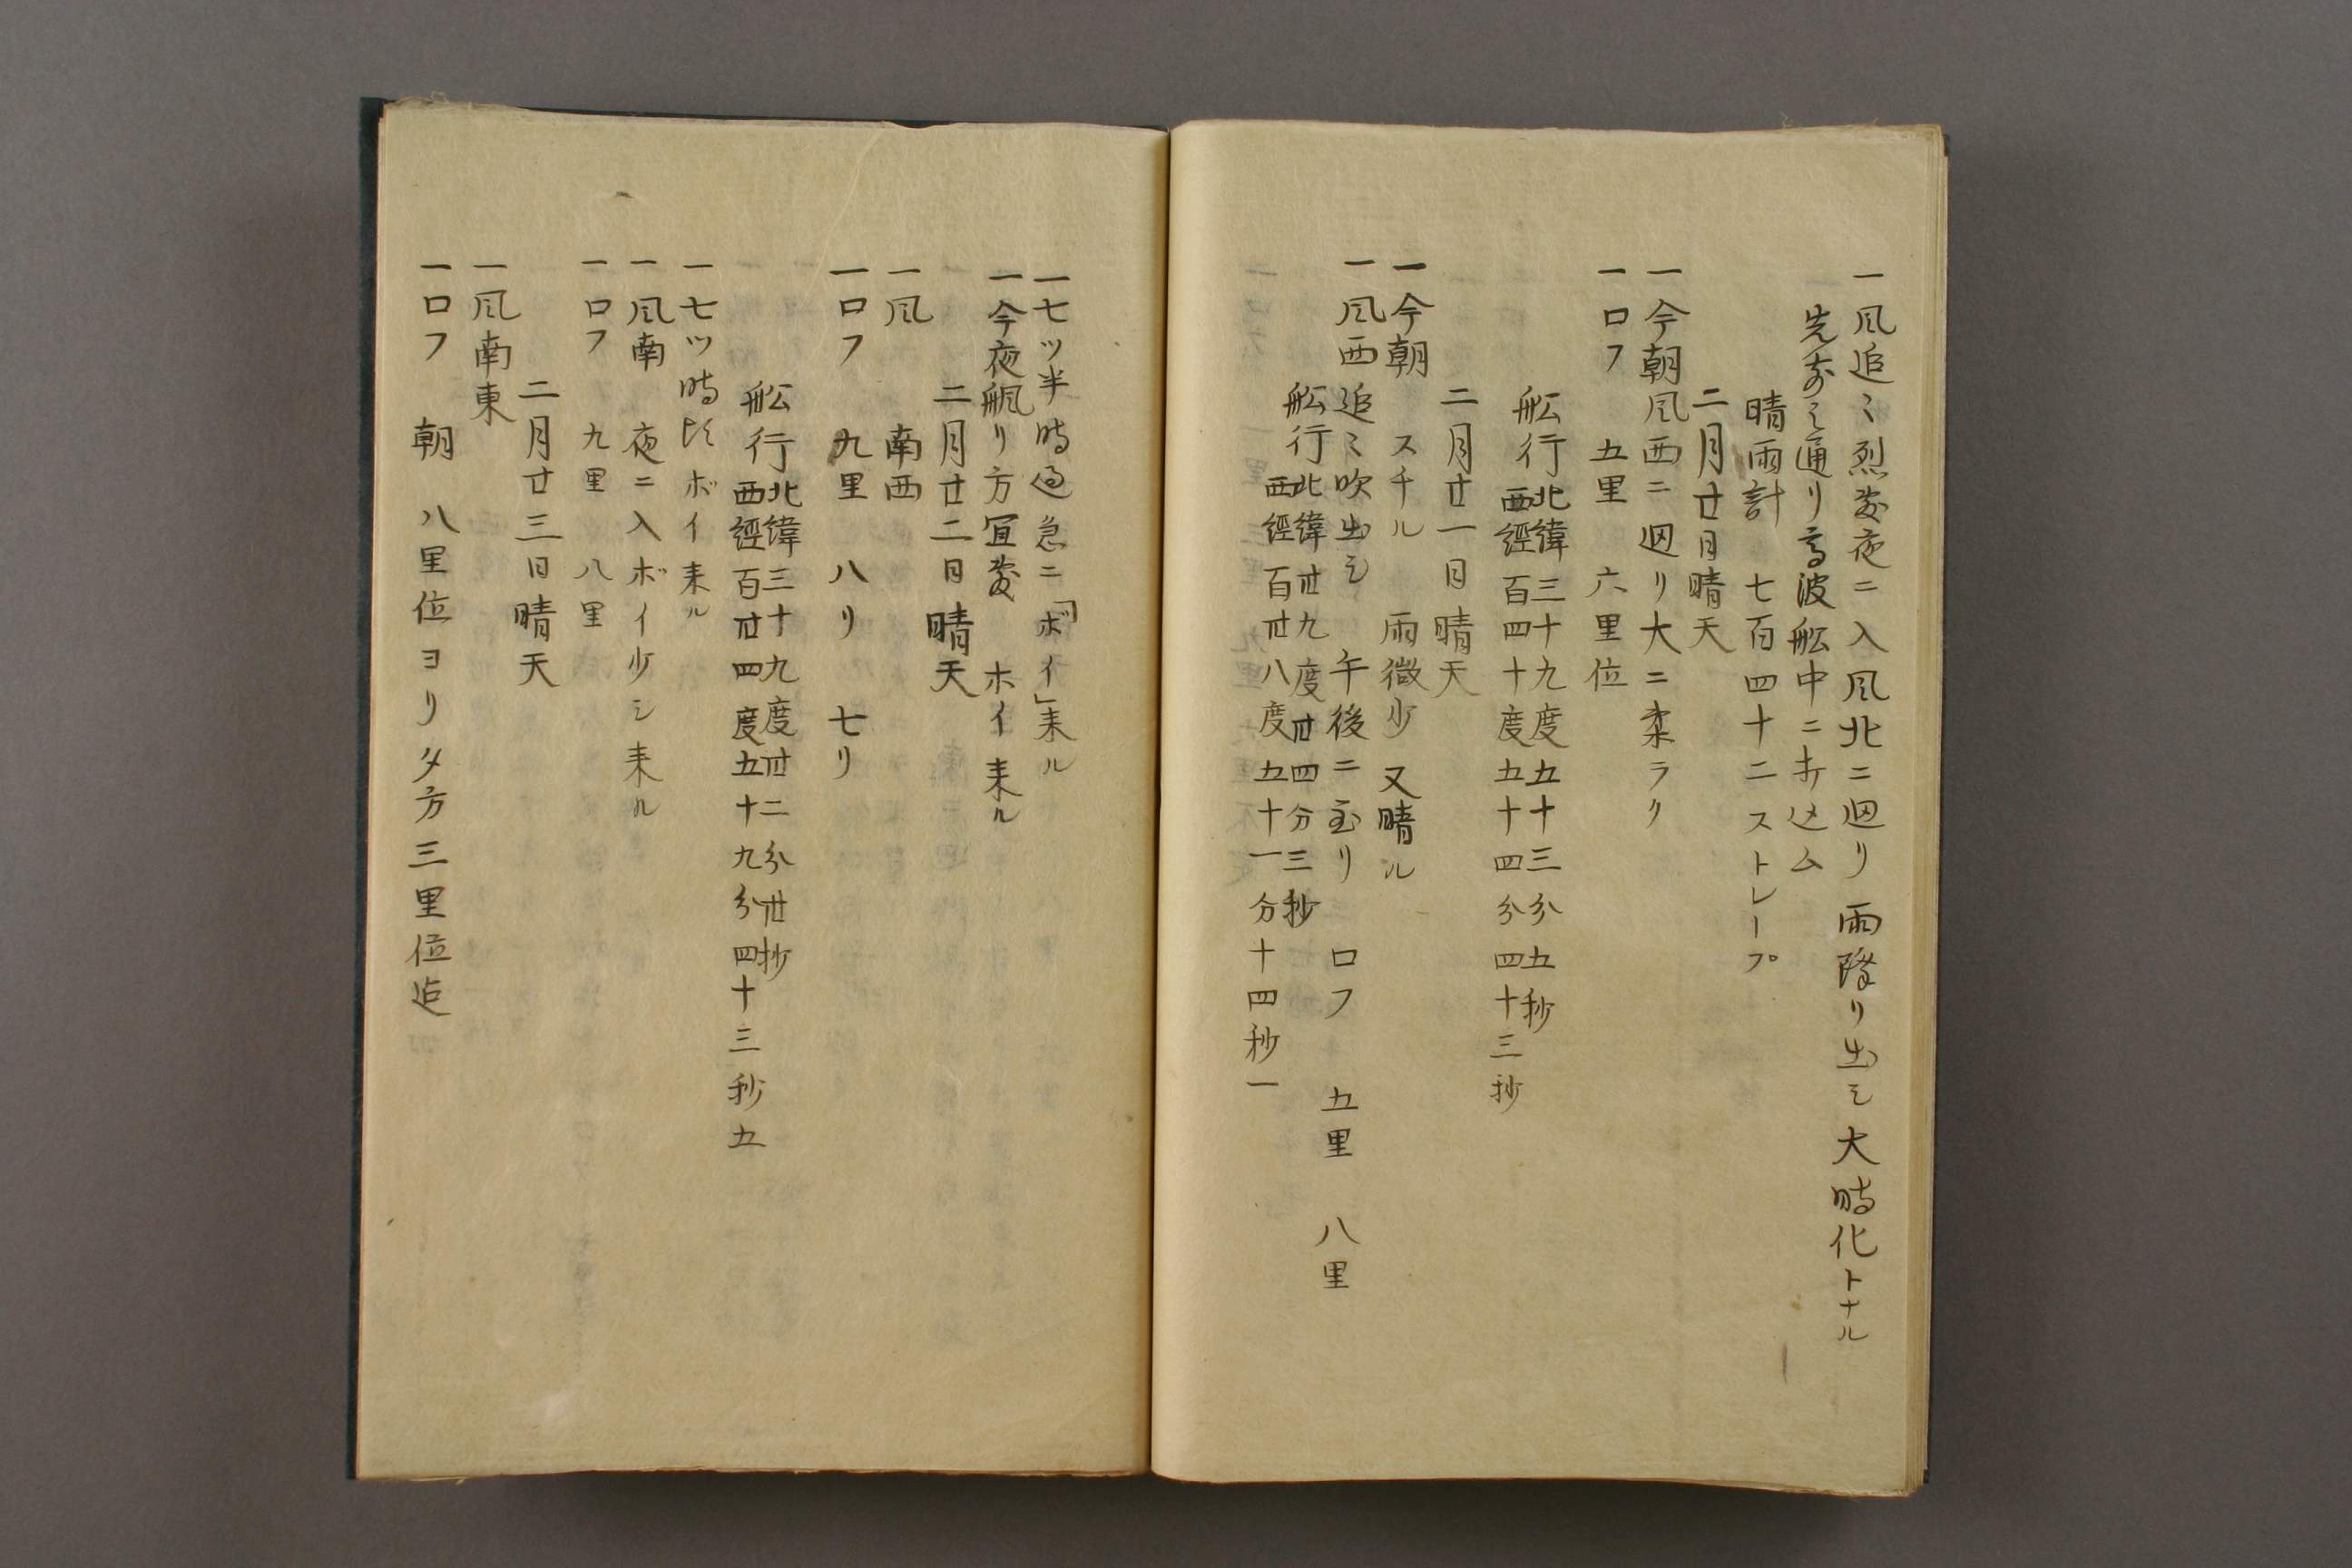 一風追〻烈敷夜ニ入風北ニ廻リ雨降リ出シ大時化トナル
先前之通リ高波舩中ニ打込ム
晴雨計 七百四十二ストレープ
二月廿日晴天
一今朝風西ニ廻リ大ニ柔ラク
一ロフ 五里 六里位
舩行 北緯三十九度五十三分五秒
西經百四十度五十四分四十三抄
二月廿一日晴天
一今朝 スチル 雨微少 又晴ル
一風西 追〻吹出シ 午後ニ至リ ロフ 五里 八里
舩行 北緯卅九度卅四分三秒
西經百卅八度五十一分十四秒一
一七ツ半時過急ニ「ボイ」来ル
一今夜颿リ方宜敷 ホイ来ル
二月廿二日晴天
一風 南西
一ロフ 九里 八リ 七リ
舩行 北緯三十九度卅二分卅抄
西經百卅四度五十九分四十三秒五
一七ツ時比ボイ来ル
一風南 夜ニ入ボイ少シ来ル
一ロフ 九里 八里
二月廿三日晴天
一風南東
一ロフ 朝 八里位ヨリ夕方三里位迄